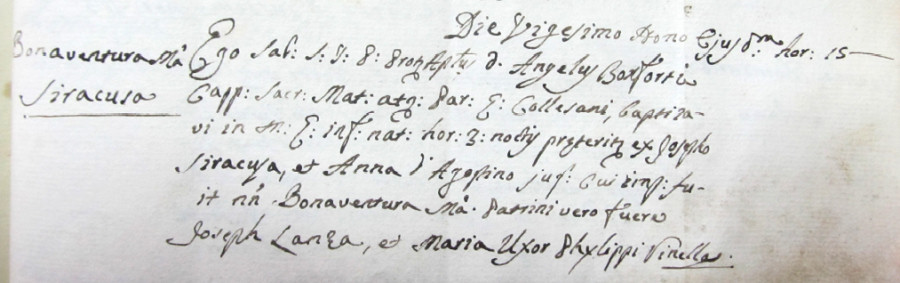 Die Vigesimo Nono Ejusdm hor: 15
Bonaventura Ma
Siracusa
Ego Sal: S: J: D: Angelus Bonforti
Capp: Sacr: Mat: atq: Par: E: Collesani, baptiza-
vi in M: E: inf: nat: hor: 3: noctis præteritę ex Joseph
Siracusa, et Anna d'Agostino jug: Cui imp: fu-
it nn Bonaventura Ma: Patrini vero fuere
Joseph Lanza, et Maria Uxor Philippi Vinella.